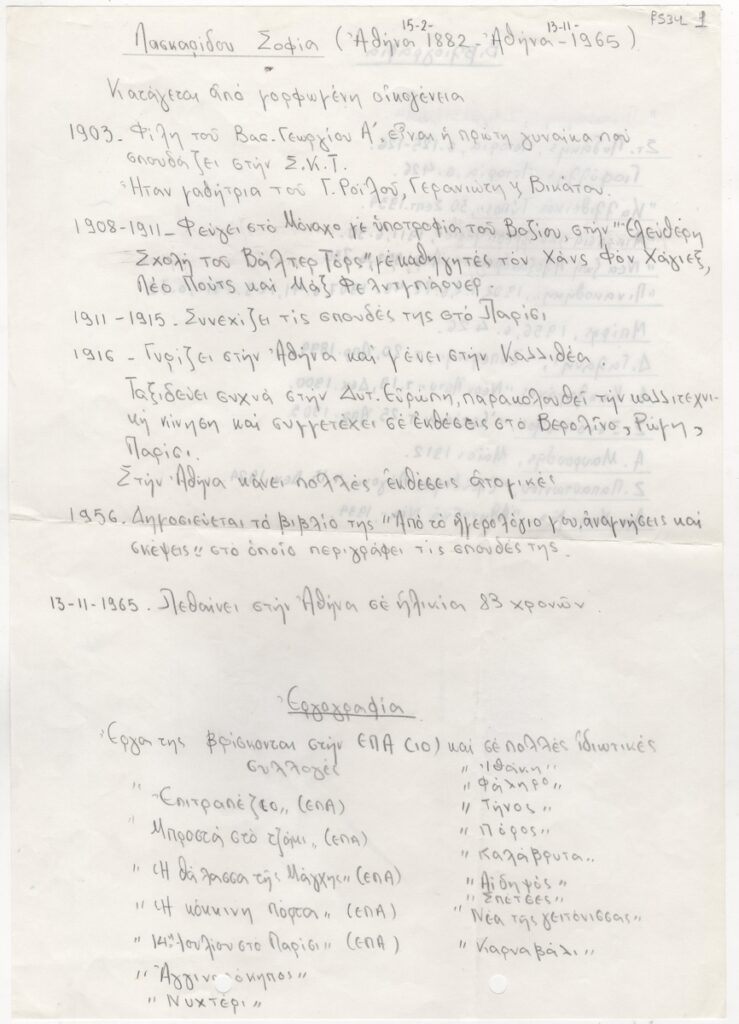 PS34L 1
Λασκαρίδου Σοφία (Ἀθήνα 15-2-1882 - Ἀθήνα 13-11-1965)
Κατάγεται ἀπό μορφωμένη οἰκογένεια
1903. Φίλη τοῦ Βασ. Γεωργίου Α', εἶναι ἡ πρώτη γυναίκα πού
σπουδάζει στήν Σ.Κ.Τ.
Ἦταν μαθήτρια τοῦ Γ. Ροϊλοῦ, Γερανιώτη ϗ Βικάτου.
1908-1911 - Φεύγει στό Μόναχο μέ ὑποτροφία τοῦ Βοζίου, στήν "Ἐλεύθερη
Σχολή τοῦ Βάλτερ Τόρ", μέ καθηγητές τόν Χάνς Φόν Χάγιεξ,
Λέο Πούτς καί Μάξ Φελντμπάουερ.
1911-1915. Συνεχίζει τίς σπουδές της στό Παρίσι
1916 - Γυρίζει στήν Ἀθήνα καί μένει στήν Καλλιθέα.
Ταξιδεύει συχνά στήν Δυτ. Εὐρώπη, παρακολουθεῖ τήν καλλιτεχνι-
κή κίνηση καί συμμετέχει σέ ἐκθέσεις στό Βερολίνο, Ρώμη,
Παρίσι.
Στήν Ἀθήνα κάνει πολλές ἐκθέσεις ἀτομικές
1956. Δημοσιεύεται τό βιβλίο της "Ἀπό τό ἡμερολόγιο μου, ἀναμνήσεις καί
σκέψεις" στό ὁποῖο περιγράφει τίς σπουδές της.
13-11-1965. Πεθαίνει στήν Ἀθήνα σέ ἡλικία 83 χρονῶν.
Ἐργογραφία
Ἔργα της βρίσκονται στήν ΕΠΑ (10) καί σέ πολλές ἰδιωτικές
συλλογές
"Ἐπιτραπέζιο" (ΕΠΑ)
"Μπροστά στό τζάμι" (ΕΠΑ)
"Ἡ θάλασσα τῆς Μάγχης" (ΕΠΑ)
"Ἡ κόκκινη πόρτα" (ΕΠΑ)
"14η Ἰουλίου στό Παρίσι" (ΕΠΑ)
"Νυχτέρι"
"Ἰθάκη"
"Φάληρο"
"Τήνος"
"Πόρος"
"Καλάβρυτα"
"Αἰδηψός"
"Σπέτσες"
"Νέα τῆς γειτόνισσας"
"Καρναβάλι"